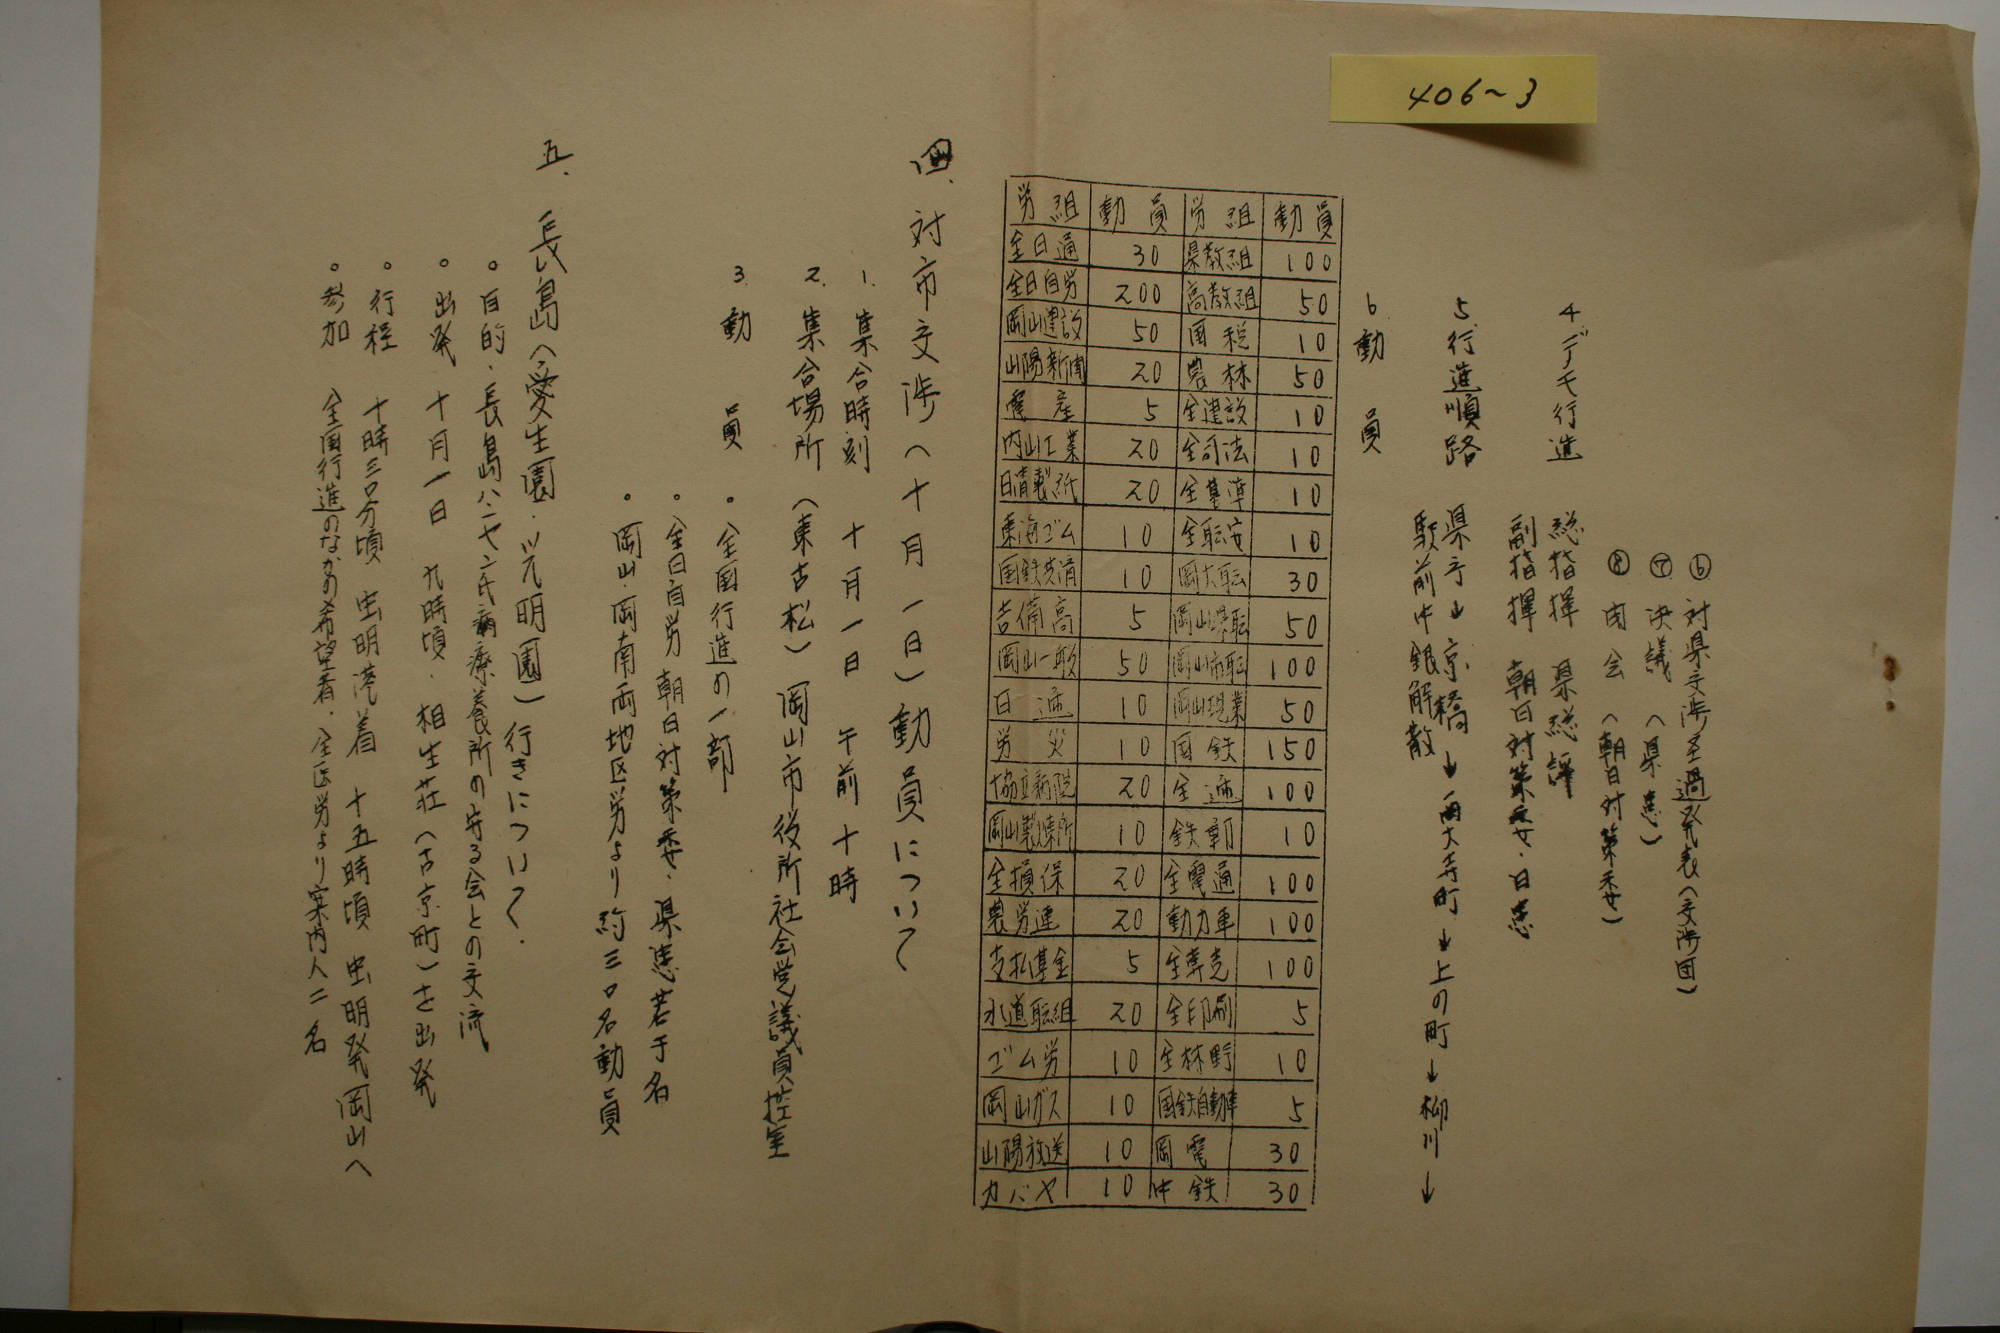 406~3
⑥ 対県交渉至過発表(交渉団)
⑦ 決議(県患)
⑧ 閉会(朝日対策委)
4 デモ行進 総指揮 県総評
副指揮 朝日対策委・日患
5 行進順路 県庁→京橋→西大寺町→上の町→柳川→
駅前中銀解散
6 動員
労組 動員 労組 動員
全日通 30 県教組 100
全日自労 200 高教組 50
岡山建設 50 国税 10
山陽新聞 20 農林 50
電産 5 全建設 10
内山工業 20 全司法 10
日清製紙 20 全基準 10
東海ゴム 10 全職安 10
国鉄共済 10 岡大職 30
吉備高 5 岡山県職 50
岡山一般 50 岡山市職 100
日逓 10 岡山現業 50
労災 10 国鉄 150
協立病院 20 全逓 100
岡山製東所 10 鉄輌 10
全損保 20 全電通 100
農労連 20 動力車 100
支払基金 5 全専売 100
水道職組 20 全印刷 5
ゴム労 10 全林野 10
岡山ガス 10 国鉄自動車 5
山陽放送 10 岡電 30
カバヤ 10 中鉄 30
四、対市交渉(十月一日)動員について
1. 集合時刻 十月一日 午前十時
2. 集合場所 (東古松)岡山市役所社会党議員控室
3. 動員 。全国行進の一部
。全日自労 朝日対策委・県患若干名
。岡山・岡南両地区労より約三〇名動員
五、長島(愛生園・光明園)行きについて.
。目的・長島ハンセン氏病療養所の守る会との交流
。出発 十月一日 九時頃・相生荘(古京町)を出発
。行程 十時三〇分頃 虫明港着 十五時頃 虫明発岡山へ
。参加 全国行進のなかの希望者・全医労より案内人二名